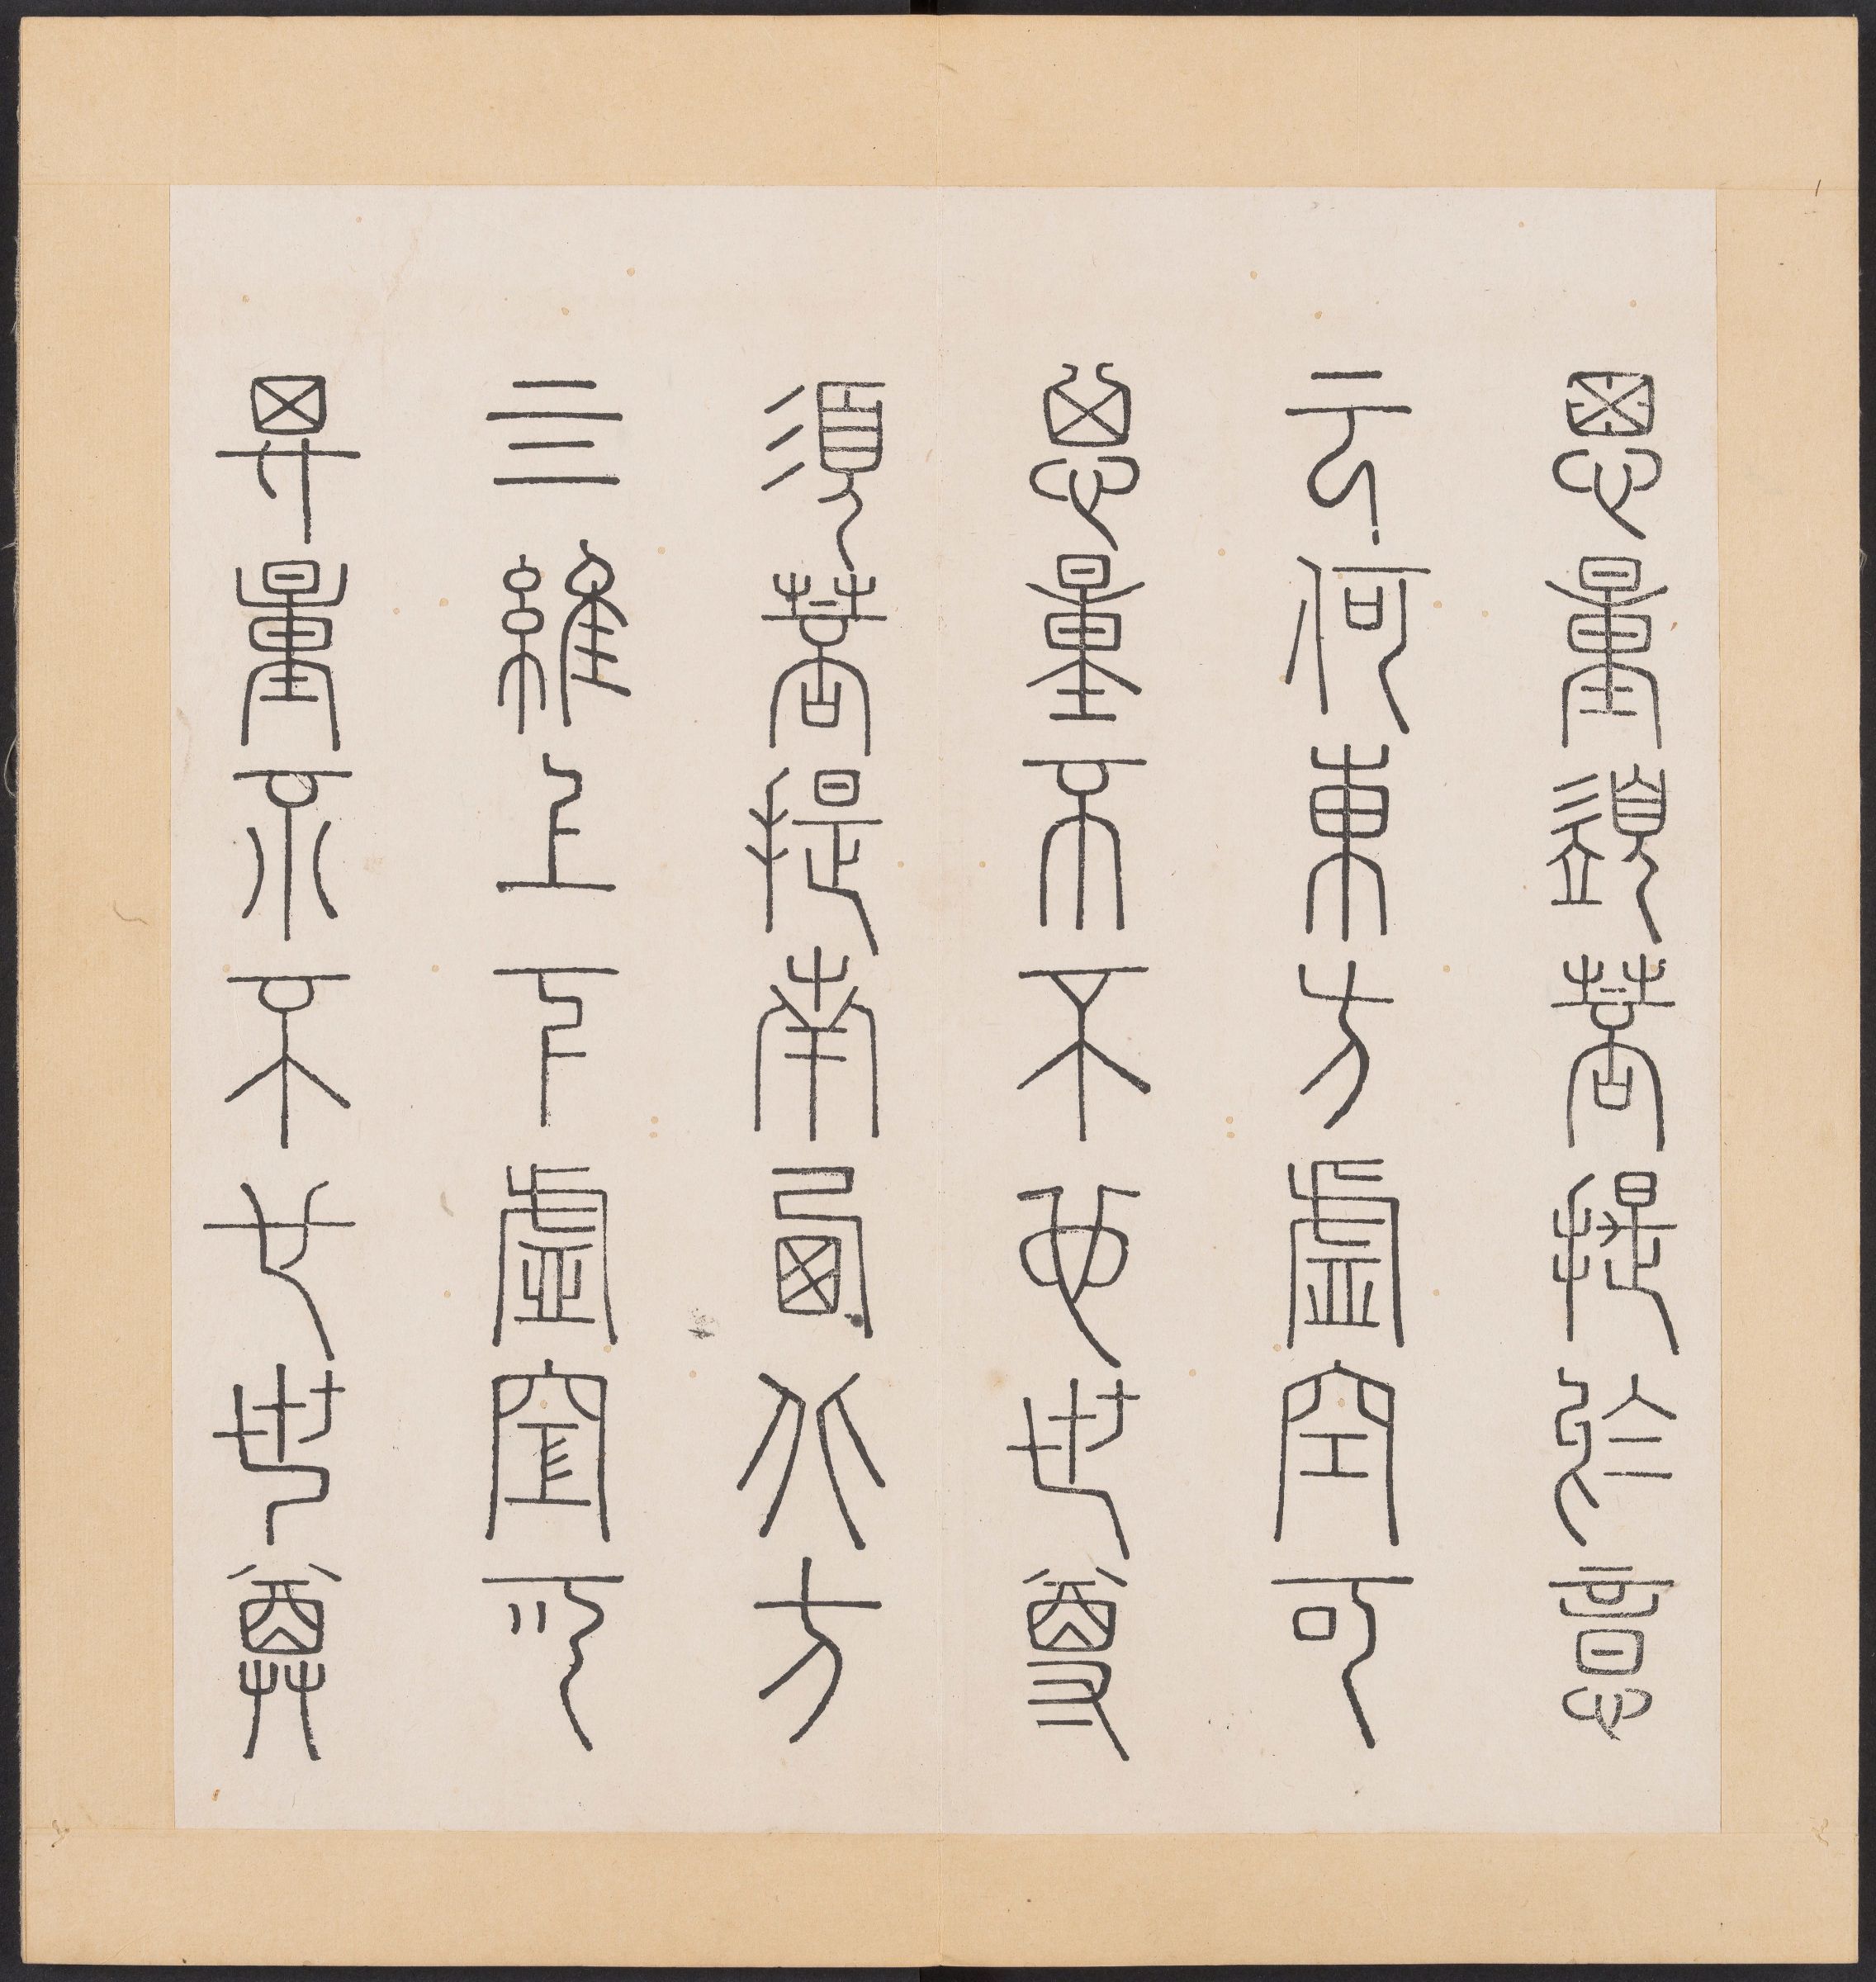 思量須菩提於意
云何東方虛空可
思量不不也世尊
須菩提南西北方
四維上下虛空可
思量不不也世尊